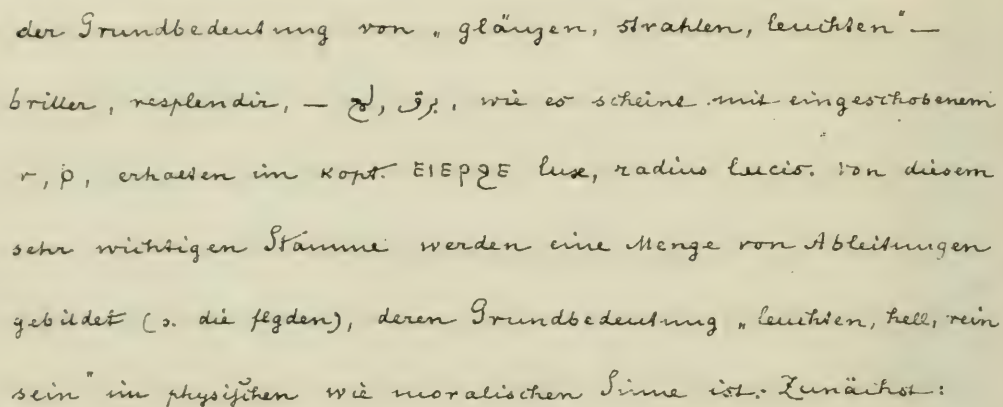 der Grundbedeutung von „ glänzen, strahlen, leuchten" —
briller, resplendir, — برق, لمح, wie es scheint mit eingeschobenem
r, ⲣ, erhalten im Kopt. ⲈⲒⲈⲢϨⲈ lux, radius lucis. Von diesem
sehr wichtigen Stamme werden eine Menge von Ableitungen
gebildet (s. die flgden), deren Grundbedeutung „ leuchten, hell, rein
sein" im physischen wie moralischen Sinne ist. Zunächst: